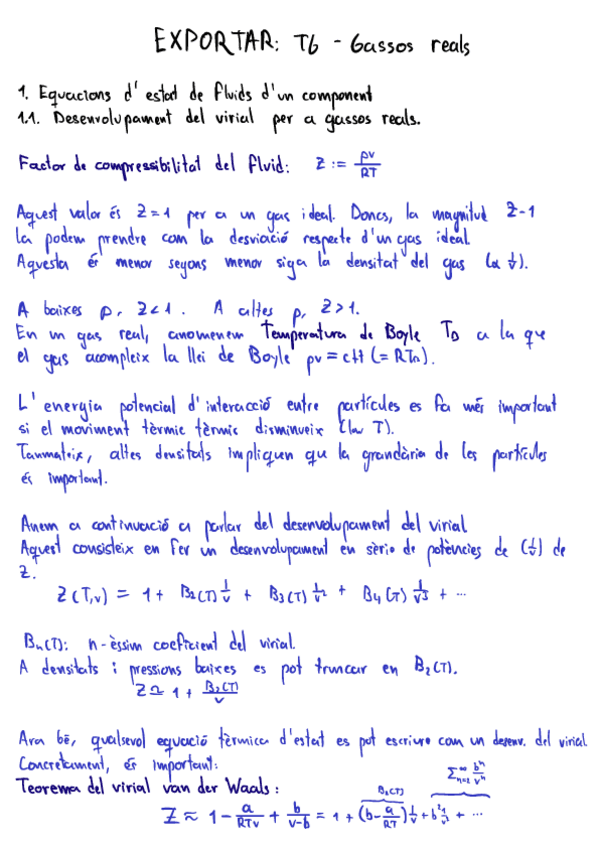 EXPORTAR: T6 - Gassos reals
1. Equacions d'estat de fluids d'un component
1.1. Desenvolupament del virial per a gassos reals.
Factor de compressibilitat del fluid: Z := pv/RT
Aquest valor és Z=1 per a un gas ideal. Doncs, la magnitud Z-1
la podem prendre com la desviació respecte d'un gas ideal.
Aquesta és menor segons menor siga la densitat del gas (α 1/v).
A baixes p, Z<1. A altes p, Z>1.
En un gas real, anomenem Temperatura de Boyle T_B a la que
el gas acompleix la llei de Boyle pv = ctt (= RT_B).
L'energia potencial d'interacció entre partícules es fa més important
si el moviment tèrmic tèrmic disminueix (low T).
Tanmateix, altes densitats impliquen que la grandària de les partícules
és important.
Anem a continuació a parlar del desenvolupament del virial
Aquest consisteix en fer un desenvolupament en sèrie de potències de (1/v) de
Z.
Z(T,v) = 1 + B₂(T) 1/v + B₃(T) 1/v² + B₄(T) 1/v³ + ...
Bₙ(T): n-èssim coeficient del virial.
A densitats i pressions baixes es pot truncar en B₂(T).
Z ≃ 1 + B₂(T)/v
Ara bé, qualsevol equació tèrmica d'estat es pot escriure com un desenv. del virial.
Concretament, és important:
Teorema del virial van der Waals:
B₂(T) Σₙ₌₂^∞ bⁿ/vⁿ
Z ≈ 1 - a/RTv + b/v-b = 1 + (b - a/RT) 1/v + b² 1/v² + ...